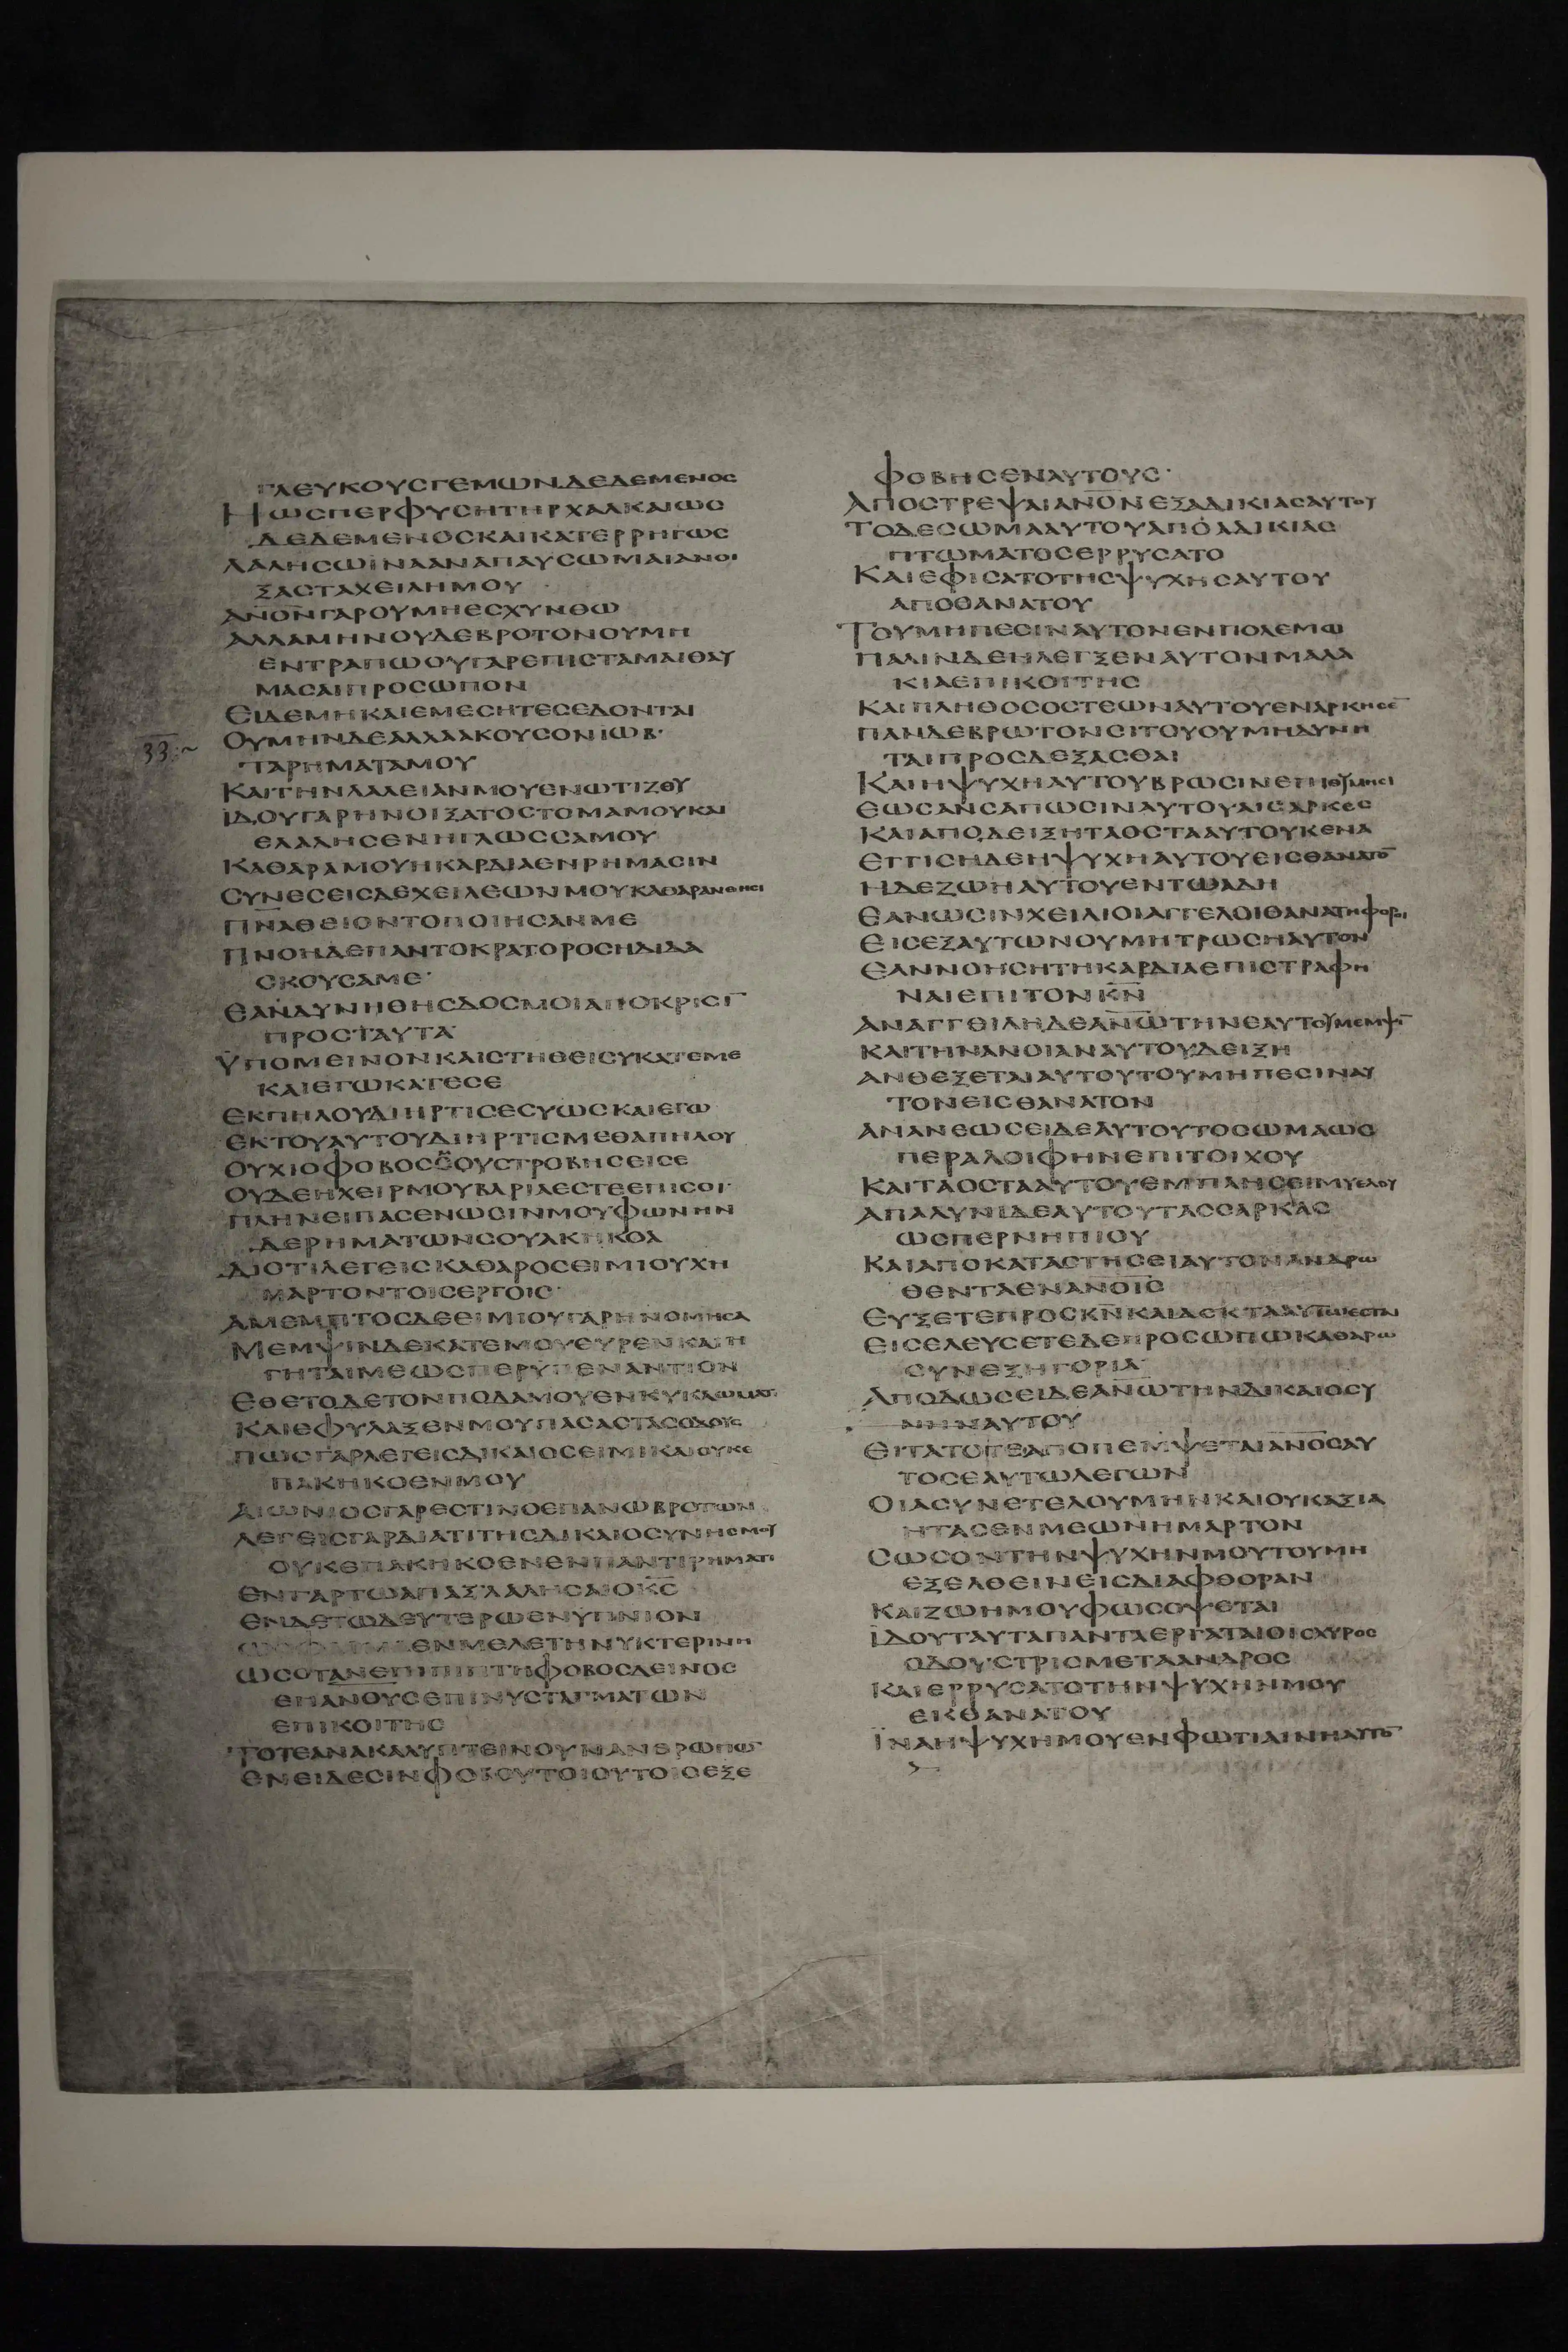 ΓΛΕΥΚΟΥΣΓΕΜΩΝΔΕΔΕΜΕΝΟΣ
ΗΩΣΠΕΡΦΥΣΗΤΗΡΧΑΛΚΑΙΩΣ
ΔΕΔΕΜΕΝΟΣΚΑΙΚΑΤΕΡΡΗΓΩΣ
ΛΑΛΗΣΩΙΝΑΑΝΑΠΑΥΣΩΜΑΙΑΝΟΙ
ΞΑΣΤΑΧΕΙΛΗΜΟΥ
ΑΝΟΝΓΑΡΟΥΜΗΕΣΧΥΝΘΩ
ΑΛΛΑΜΗΝΟΥΔΕΒΡΟΤΟΝΟΥΜΗ
ΕΝΤΡΑΠΩΟΥΓΑΡΕΠΙΣΤΑΜΑΙΘΑΥ
ΜΑΣΑΙΠΡΟΣΩΠΟΝ
ΕΙΔΕΜΗΚΑΙΕΜΕΣΗΤΕΣΕΔΟΝΤΑΙ
33:~ ΟΥΜΗΝΔΕΑΛΛΑΑΚΟΥΣΟΝΙΩΒ·
ΤΑΡΗΜΑΤΑΜΟΥ
ΚΑΙΤΗΝΛΑΛΕΙΑΝΜΟΥΕΝΩΤΙΖΟΥ
ΙΔΟΥΓΑΡΗΝΟΙΞΑΤΟΣΤΟΜΑΜΟΥΚΑΙ
ΕΛΑΛΗΣΕΝΗΓΛΩΣΣΑΜΟΥ
ΚΑΘΑΡΑΜΟΥΗΚΑΡΔΙΑΕΝΡΗΜΑΣΙΝ
ΣΥΝΕΣΕΙΣΔΕΧΕΙΛΕΩΝΜΟΥΚΑΘΑΡΑΝΟΗΣΙ
ΠΝΑΘΕΙΟΝΤΟΠΟΙΗΣΑΝΜΕ
ΠΝΟΗΔΕΠΑΝΤΟΚΡΑΤΟΡΟΣΗΔΙΔΑ
ΣΚΟΥΣΑΜΕ·
ΕΑΝΔΥΝΗΘΗΣΔΟΣΜΟΙΑΠΟΚΡΙΣΙ̅
ΠΡΟΣΤΑΥΤΑ
ΥΠΟΜΕΙΝΟΝΚΑΙΣΤΗΘΕΙΣΥΚΑΤΕΜΕ
ΚΑΙΕΓΩΚΑΤΕΣΕ
ΕΚΠΗΛΟΥΔΙΗΡΤΙΣΕΣΥΩΣΚΑΙΕΓΩ
ΕΚΤΟΥΑΥΤΟΥΔΙΗΡΤΙΣΜΕΘΑΠΗΛΟΥ
ΟΥΧΙΟΦΟΒΟΣΣΟΥΣΤΡΟΒΗΣΕΙΣΕ
ΟΥΔΕΗΧΕΙΡΜΟΥΒΑΡΙΑΕΣΤΕΕΠΙΣΟΙ·
ΠΛΗΝΕΙΠΑΣΕΝΩΣΙΝΜΟΥΦΩΝΗΝ
ΔΕΡΗΜΑΤΩΝΣΟΥΑΚΗΚΟΑ
ΔΙΟΤΙΛΕΓΕΙΣΚΑΘΑΡΟΣΕΙΜΙΟΥΧΗ
ΜΑΡΤΟΝΤΟΙΣΕΡΓΟΙΣ·
ΑΜΕΜΠΤΟΣΔΕΕΙΜΙΟΥΓΑΡΗΝΟΜΗΣΑ
ΜΕΜΨΙΝΔΕΚΑΤΕΜΟΥΕΥΡΕΝΚΑΙΗ
ΓΗΤΑΙΜΕΩΣΠΕΡΥΠΕΝΑΝΤΙΟΝ
ΕΘΕΤΟΔΕΤΟΝΠΟΔΑΜΟΥΕΝΚΥΚΛΩΜΑΤΙ
ΚΑΙΕΦΥΛΑΞΕΝΜΟΥΠΑΣΑΣΤΑΣΟΔΟΥΣ
ΠΩΣΓΑΡΛΕΓΕΙΣΔΙΚΑΙΟΣΕΙΜΙΚΑΙΟΥΚΕ
ΠΑΚΗΚΟΕΝΜΟΥ
ΑΙΩΝΙΟΣΓΑΡΕΣΤΙΝΟΕΠΑΝΩΒΡΟΤΩΝ
ΛΕΓΕΙΣΓΑΡΔΙΑΤΙΤΗΣΔΙΚΑΙΟΣΥΝΗΣΜΟΥ
ΟΥΚΕΠΑΚΗΚΟΕΝΕΝΠΑΝΤΙΡΗΜΑΤΙ
ΕΝΓΑΡΤΩΑΠΑΞΛΑΛΗΣΑΙΟΚΣ
ΕΝΔΕΤΩΔΕΥΤΕΡΩΕΝΥΠΝΙΟΝ
ΕΝΜΕΛΕΤΗΝΥΚΤΕΡΙΝΗ
ΩΣΟΤΑΝΕΠΙΠΙΠΤΗΦΟΒΟΣΔΕΙΝΟΣ
ΕΠΑΝΟΥΣΕΠΙΝΥΣΤΑΓΜΑΤΩΝ
ΕΠΙΚΟΙΤΗΣ
ΤΟΤΕΑΝΑΚΑΛΥΠΤΕΙΝΟΥΝΑΝΘΡΩΠΩ̅
ΕΝΕΙΔΕΣΙΝΦΟΒΟΥΤΟΙΟΥΤΟΙΣΕΞΕ
ΦΟΒΗΣΕΝΑΥΤΟΥΣ·
ΑΠΟΣΤΡΕΨΑΙΑΝΟΝΕΞΑΔΙΚΙΑΣΑΥΤΟΥ
ΤΟΔΕΣΩΜΑΑΥΤΟΥΑΠΟΑΔΙΚΙΑΣ
ΠΤΩΜΑΤΟΣΕΡΡΥΣΑΤΟ
ΚΑΙΕΦΙΣΑΤΟΤΗΣΨΥΧΗΣΑΥΤΟΥ
ΑΠΟΘΑΝΑΤΟΥ
ΤΟΥΜΗΠΕΣΙΝΑΥΤΟΝΕΝΠΟΛΕΜΩ
ΠΑΛΙΝΔΕΗΛΕΓΞΕΝΑΥΤΟΝΜΑΛΑ
ΚΙΑΕΠΙΚΟΙΤΗΣ
ΚΑΙΠΛΗΘΟΣΟΣΤΕΩΝΑΥΤΟΥΕΝΑΡΚΗΣΕ̅
ΠΑΝΔΕΒΡΩΤΟΝΣΙΤΟΥΟΥΜΗΔΥΝΗ
ΤΑΙΠΡΟΣΔΕΞΑΣΘΑΙ
ΚΑΙΗΨΥΧΗΑΥΤΟΥΒΡΩΣΙΝΕΠΙΘΥΜΗΣΙ
ΕΩΣΑΝΣΑΠΩΣΙΝΑΥΤΟΥΑΙΣΑΡΚΕΣ
ΚΑΙΑΠΟΔΕΙΞΗΤΑΟΣΤΑΑΥΤΟΥΚΕΝΑ
ΕΓΓΙΣΗΔΕΗΨΥΧΗΑΥΤΟΥΕΙΣΘΑΝΑΤΟ̅
ΗΔΕΖΩΗΑΥΤΟΥΕΝΤΩΑΔΗ
ΕΑΝΩΣΙΝΧΕΙΛΙΟΙΑΓΓΕΛΟΙΘΑΝΑΤΗΦΟΡΟΙ
ΕΙΣΕΞΑΥΤΩΝΟΥΜΗΤΡΩΣΗΑΥΤΟΝ
ΕΑΝΝΟΗΣΗΤΗΚΑΡΔΙΑΕΠΙΣΤΡΑΦΗ
ΝΑΙΕΠΙΤΟΝΚΝ
ΑΝΑΓΓΕΙΛΗΔΕΑΝΩΤΗΝΕΑΥΤΟΥΜΕΜΨΙ̅
ΚΑΙΤΗΝΑΝΟΙΑΝΑΥΤΟΥΔΕΙΞΗ
ΑΝΘΕΞΕΤΑΙΑΥΤΟΥΤΟΥΜΗΠΕΣΙΝΑΥ
ΤΟΝΕΙΣΘΑΝΑΤΟΝ
ΑΝΑΝΕΩΣΕΙΔΕΑΥΤΟΥΤΟΣΩΜΑΩΣ
ΠΕΡΑΛΟΙΦΗΝΕΠΙΤΟΙΧΟΥ
ΚΑΙΤΑΟΣΤΑΑΥΤΟΥΕΜΠΛΗΣΕΙΜΥΕΛΟΥ
ΑΠΑΛΥΝΙΔΕΑΥΤΟΥΤΑΣΣΑΡΚΑΣ
ΩΣΠΕΡΝΗΠΙΟΥ
ΚΑΙΑΠΟΚΑΤΑΣΤΗΣΕΙΑΥΤΟΝΑΝΔΡΩ
ΘΕΝΤΑΕΝΑΝΟΙΣ
ΕΥΞΕΤΕΠΡΟΣΚΝΚΑΙΔΕΚΤΑΑΥΤΩΕΣΤΑΙ
ΕΙΣΕΛΕΥΣΕΤΕΔΕΠΡΟΣΩΠΩΚΑΘΑΡΩ
ΣΥΝΕΞΗΓΟΡΙΑ
ΑΠΟΔΩΣΕΙΔΕΑΝΩΤΗΝΔΙΚΑΙΟΣΥ
ΝΗΝΑΥΤΟΥ
ΕΙΤΑΤΟΤΕΑΠΟΠΕΜΨΕΤΑΙΑΝΟΣΑΥ
ΤΟΣΕΑΥΤΩΛΕΓΩΝ
ΟΙΑΣΥΝΕΤΕΛΟΥΜΗΝΚΑΙΟΥΚΑΞΙΑ
ΗΤΑΣΕΝΜΕΩΝΗΜΑΡΤΟΝ
ΣΩΣΟΝΤΗΝΨΥΧΗΝΜΟΥΤΟΥΜΗ
ΕΞΕΛΘΕΙΝΕΙΣΔΙΑΦΘΟΡΑΝ
ΚΑΙΖΩΗΜΟΥΦΩΣΟΨΕΤΑΙ
ΙΔΟΥΤΑΥΤΑΠΑΝΤΑΕΡΓΑΤΑΙΟΙΣΧΥΡΟΣ
ΟΔΟΥΣΤΡΙΣΜΕΤΑΑΝΔΡΟΣ
ΚΑΙΕΡΡΥΣΑΤΟΤΗΝΨΥΧΗΝΜΟΥ
ΕΚΘΑΝΑΤΟΥ
ΙΝΑΗΨΥΧΗΜΟΥΕΝΦΩΤΙΑΙΝΗΑΥΤΟ̅